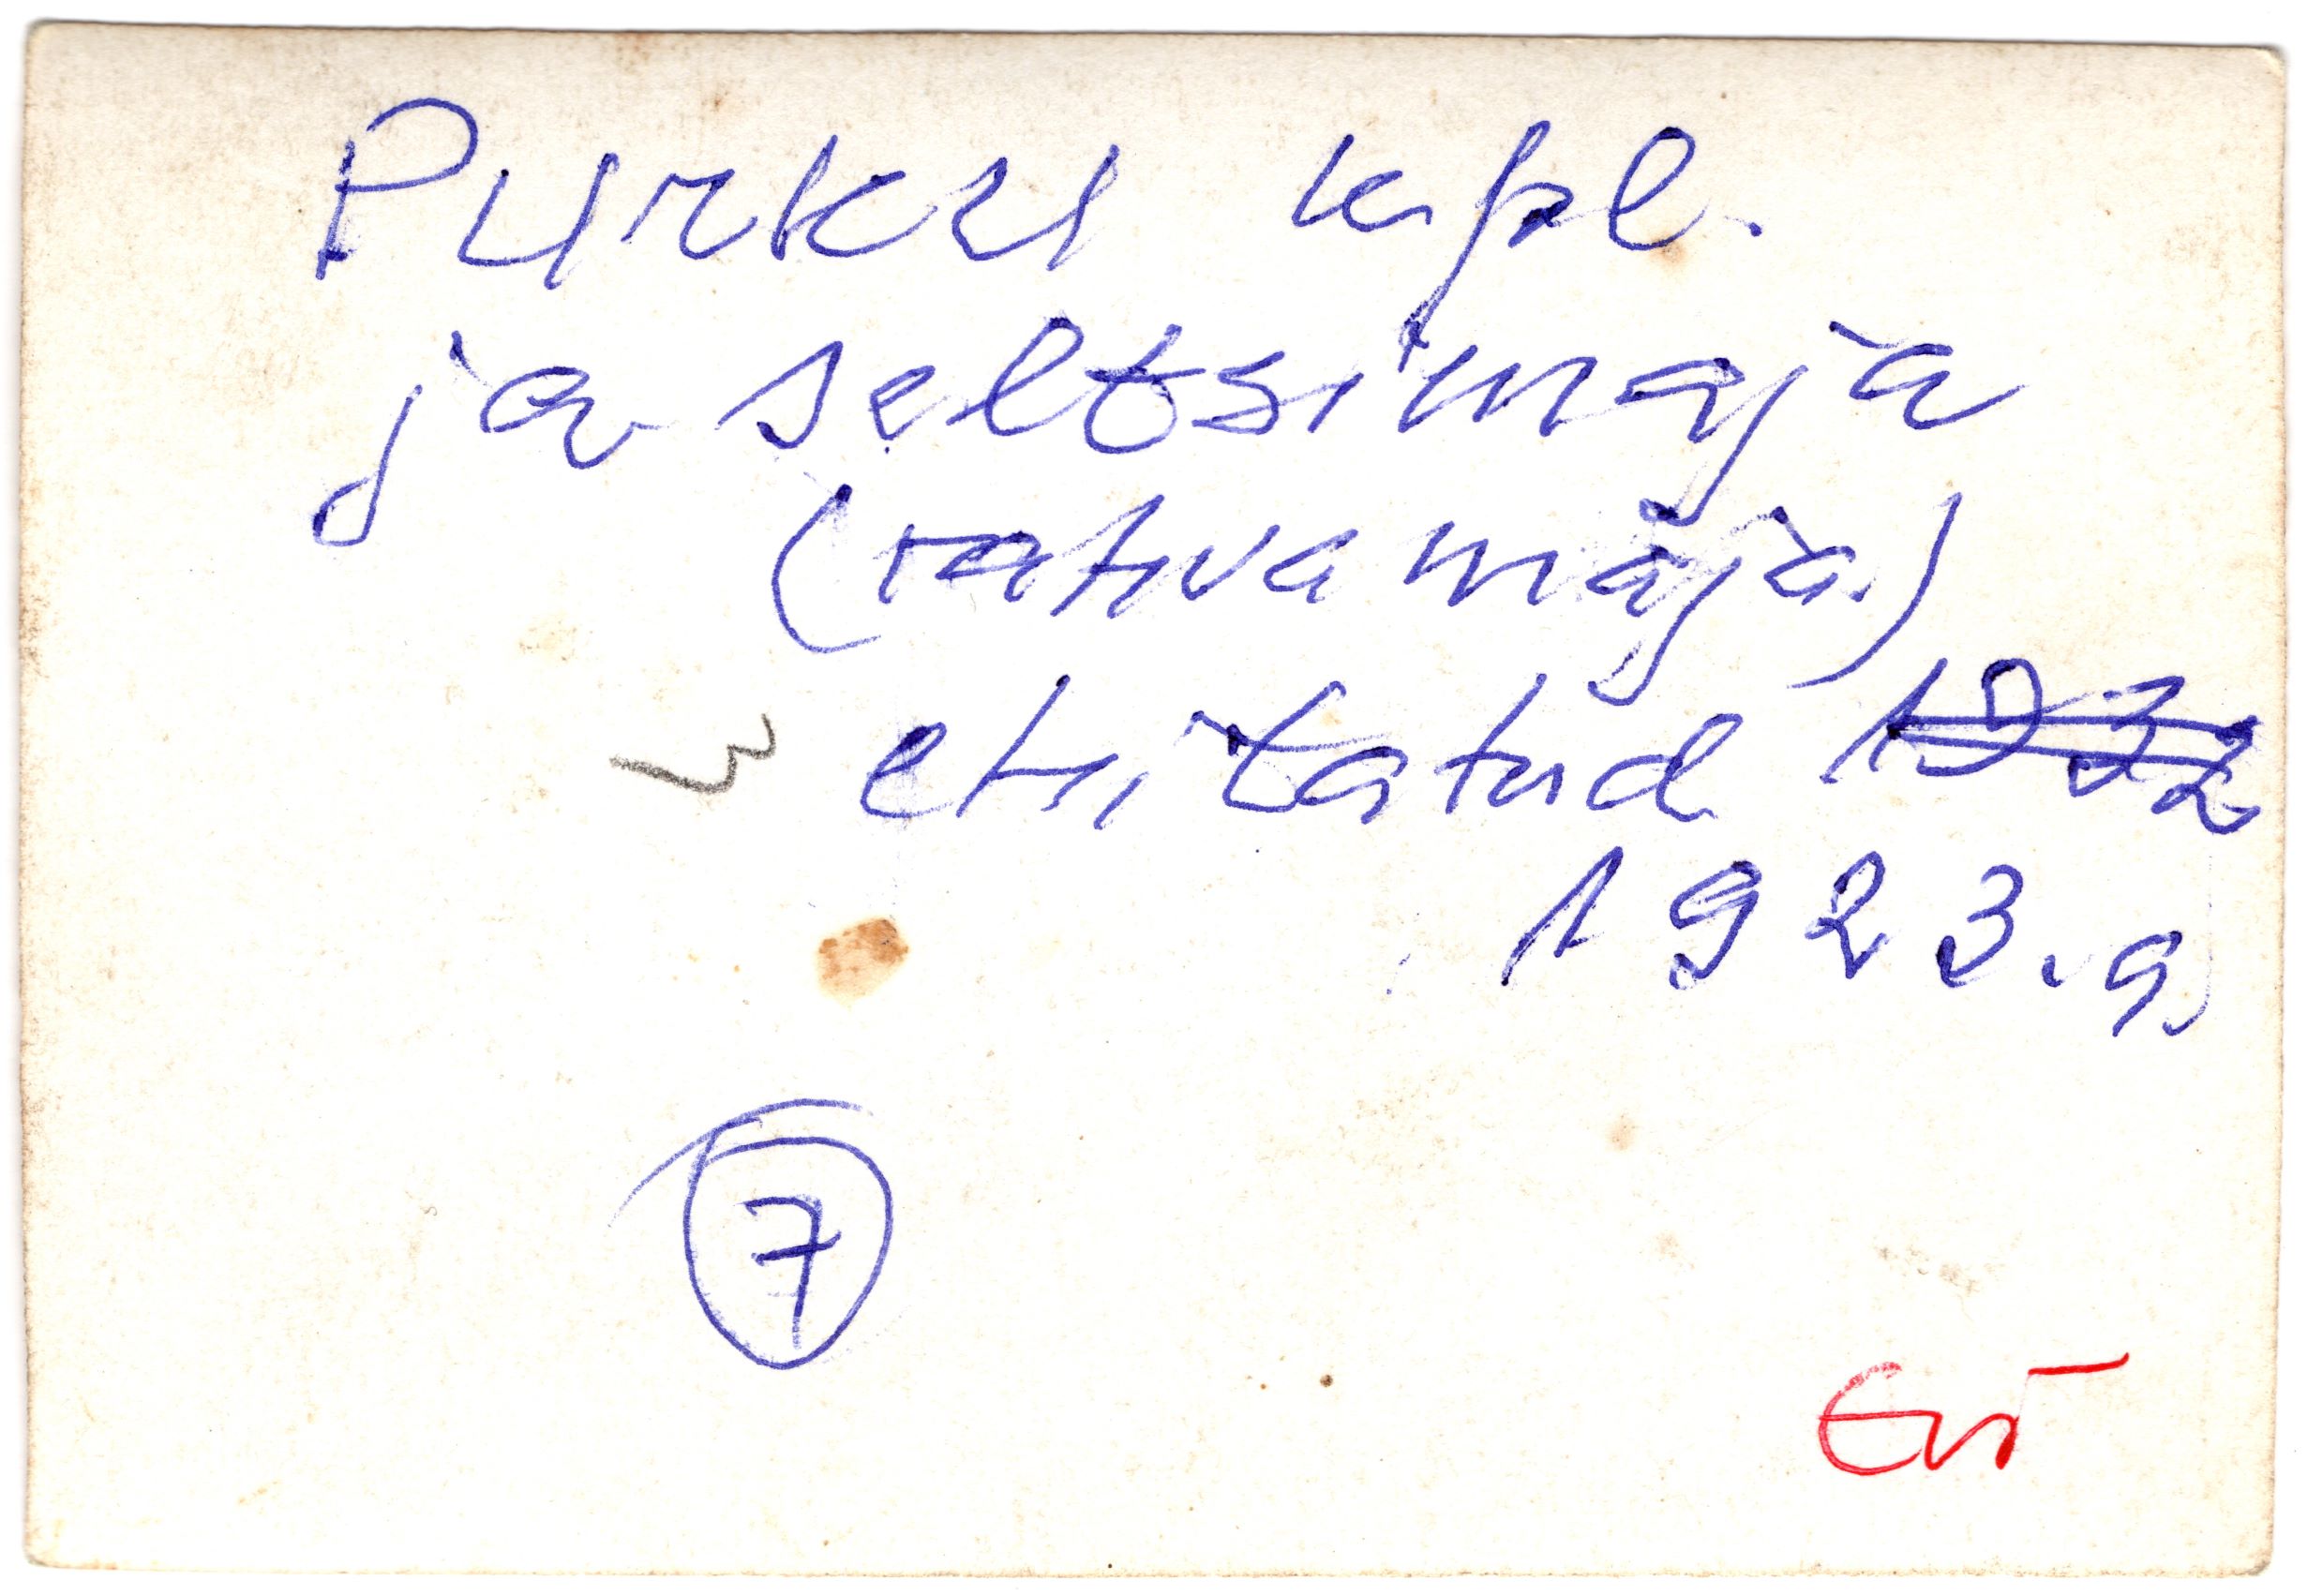 Purku kpl.
ja seltsimaja
(rahvamaja)
ehitatud 1932
1923.a
7